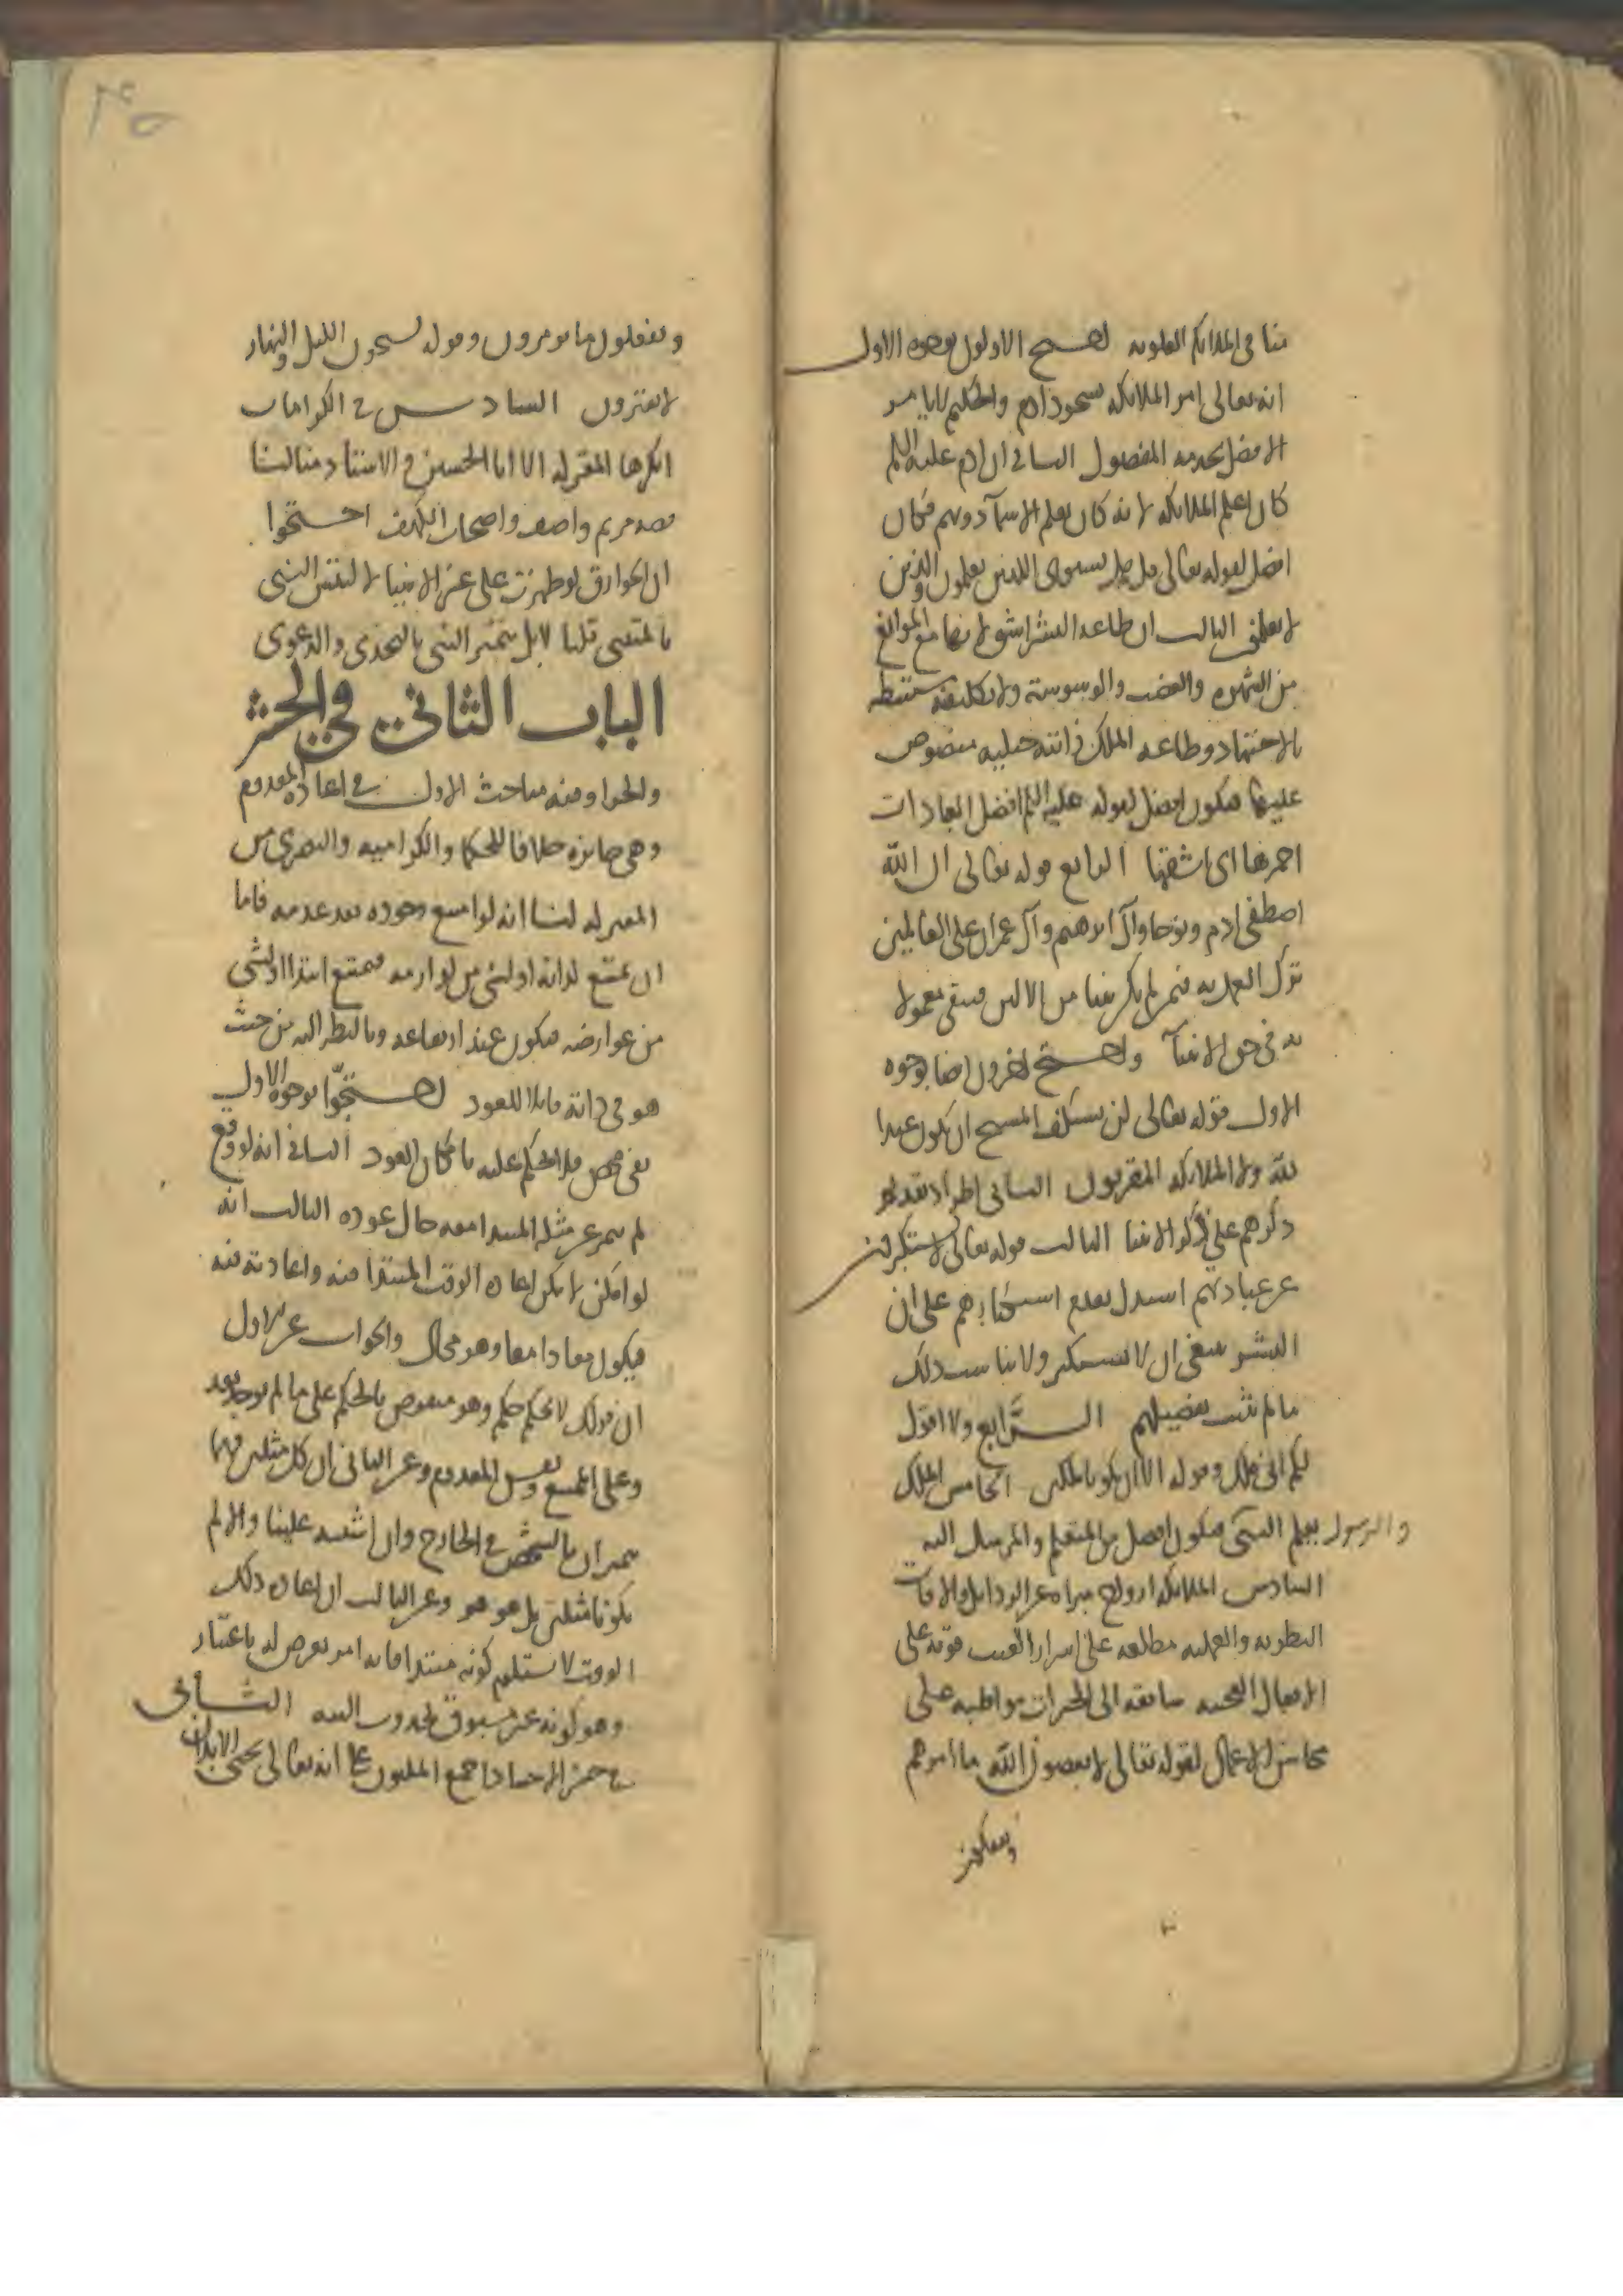 منا في الملائكة العلوية احتج الاولون بوجوه الاول
انه تعالى امر الملائكة بسجود ادم والحكيم لا يامر
الافضل بخدمة المفضول الثاني ان ادم عليه السلم
كان اعلم الملائكة لانه كان يعلم الاسمآ دونهم فكان
افضل لقوله تعالى قل هل يستوى الذين يعلمون والذين
لا يعلمون الثالث ان طاعة البشر اشق لانها مع الموانع
من الشهوة والغضب والوسوسة ولان تكليفه مستنبطه
بالاجتهاد وطاعة الملك ذاتيه جبليه منصوص
عليها فيكون افضل لقوله عليه السلم افضل العبادات
احمزها اى اشقها الرابع قوله تعالى ان الله
اصطفى ادم ونوحا وآل ابرهيم وآل عمران على العالمين
ترك العمل به فيمن لم يكن نبيا من الالين فبقى معمولا
به في حق الانبيآ واحتج اخرون ايضا بوجوه
الاول قوله تعالى لن يستنكف المسيح ان يكون عبدا
لله ولا الملائكة المقربون الثاني اطراد تقديم
ذكرهم على ذكر الانبيا الثالث قوله تعالى لا يستكبرون
عن عبادتهم استدل بعدم استكبارهم على ان
البشر ينبغي ان لا يستكبر ولا يناسب ذلك
ما لم يثبت تفضيلهم الرابع ولا اقول
لكم اني ملك وقوله الا ان تكونا ملكين الخامس الملك
والرسول يعلم النبى فيكون افضل من المتعلم والمرسل اليه
السادس الملائكة ارواح مبراة عن الرذايل والافات
النظرية والعملية مطلعة على اسرار الغيب قوية على
الافعال العجيبة سابقة الى الخيرات مواظبة على
محاسن الاعمال لقوله تعالى لا يعصون الله ما امرهم
ويفعلون
ويفعلون ما يومرون وقوله يسبحون الليل والنهار
لا يفترون السادس في الكرامات
انكرها المعتزلة الا ابا الحسين والاستاد منا لنا
قصة مريم واصف واصحاب الكهف احتجوا
ان الخوارق لو ظهرت على غير الانبيا لالتبس النبى
بالمتنبى قلنا لا بل يتميز النبى بالتحدى والدعوى
الباب الثاني في الحشر
والجزا وفيه مباحث الاول في اعادة المعدوم
وهي جايزة خلافا للحكما والكرامية والبصرى من
المعتزلة لنا انه لو امتنع وجوده بعد عدمه فاما
ان يمتنع لذاته او لشى من لوازمه فيمتنع ابتدا او لشى
من عوارضه فيكون عند ارتفاعه وبالنظر اليه من حيث
هو في ذاته قابلا للعود احتجوا بوجوه الاول
نفى محض فلا يحكم عليه بامكان العود الثاني انه لو وقع
لم يتميز عن مثله المبتدا معه حال عوده الثالث انه
لو امكن لامكن اعادة الوقت المبتدا فيه واعادته فيه
فيكون معادا معا وهو محال والجواب عن الاول
ان قولك لا يحكم حكم وهو منقوض بالحكم على ما لم يوجد بعد
وعلى الممتنع ونفس المعدوم وعن الثاني ان كل مثلين فهما
يتميزان بالتشخص في الخارج وان اشتبه علينا والا لم
يكونا مثلين بل هو هو وعن الثالث ان اعادة ذلك
الوقت لا يستلزم كونه مبتدا فانه امر يعرض له باعتبار
وهو كونه غير مسبوق بحدوث البته الثاني
في حشر الاجساد اجمع المليون على انه تعالى يحيى الابدان
٣٥